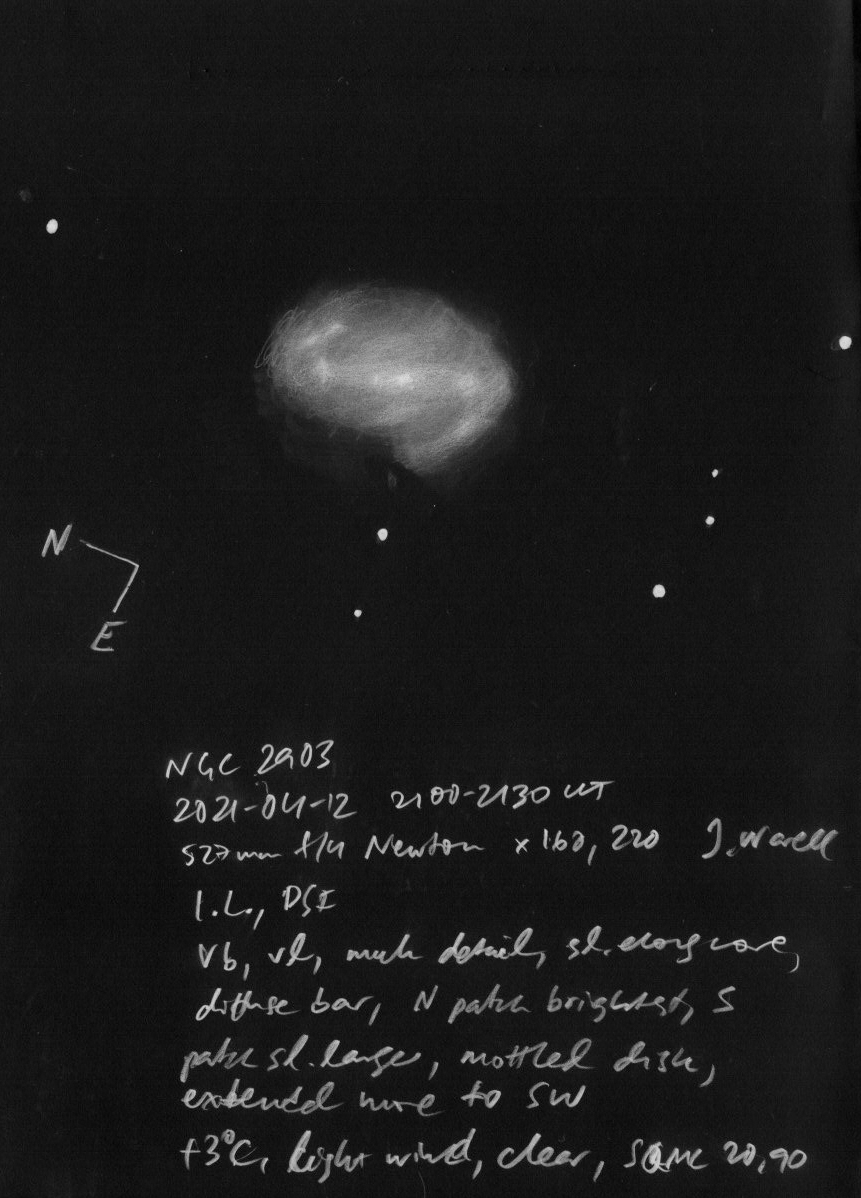 N
E
NGC 2903
2021-04-12 2100-2130 UT
527mm f/4 Newton ×160, 220 J. Warell
vb, vl, much detail, sl. elong core,
diffuse bar, N patch brightest, S
patch sl. large, mottled disk,
extended more to SW
+3°C, light wind, clear, 20,90